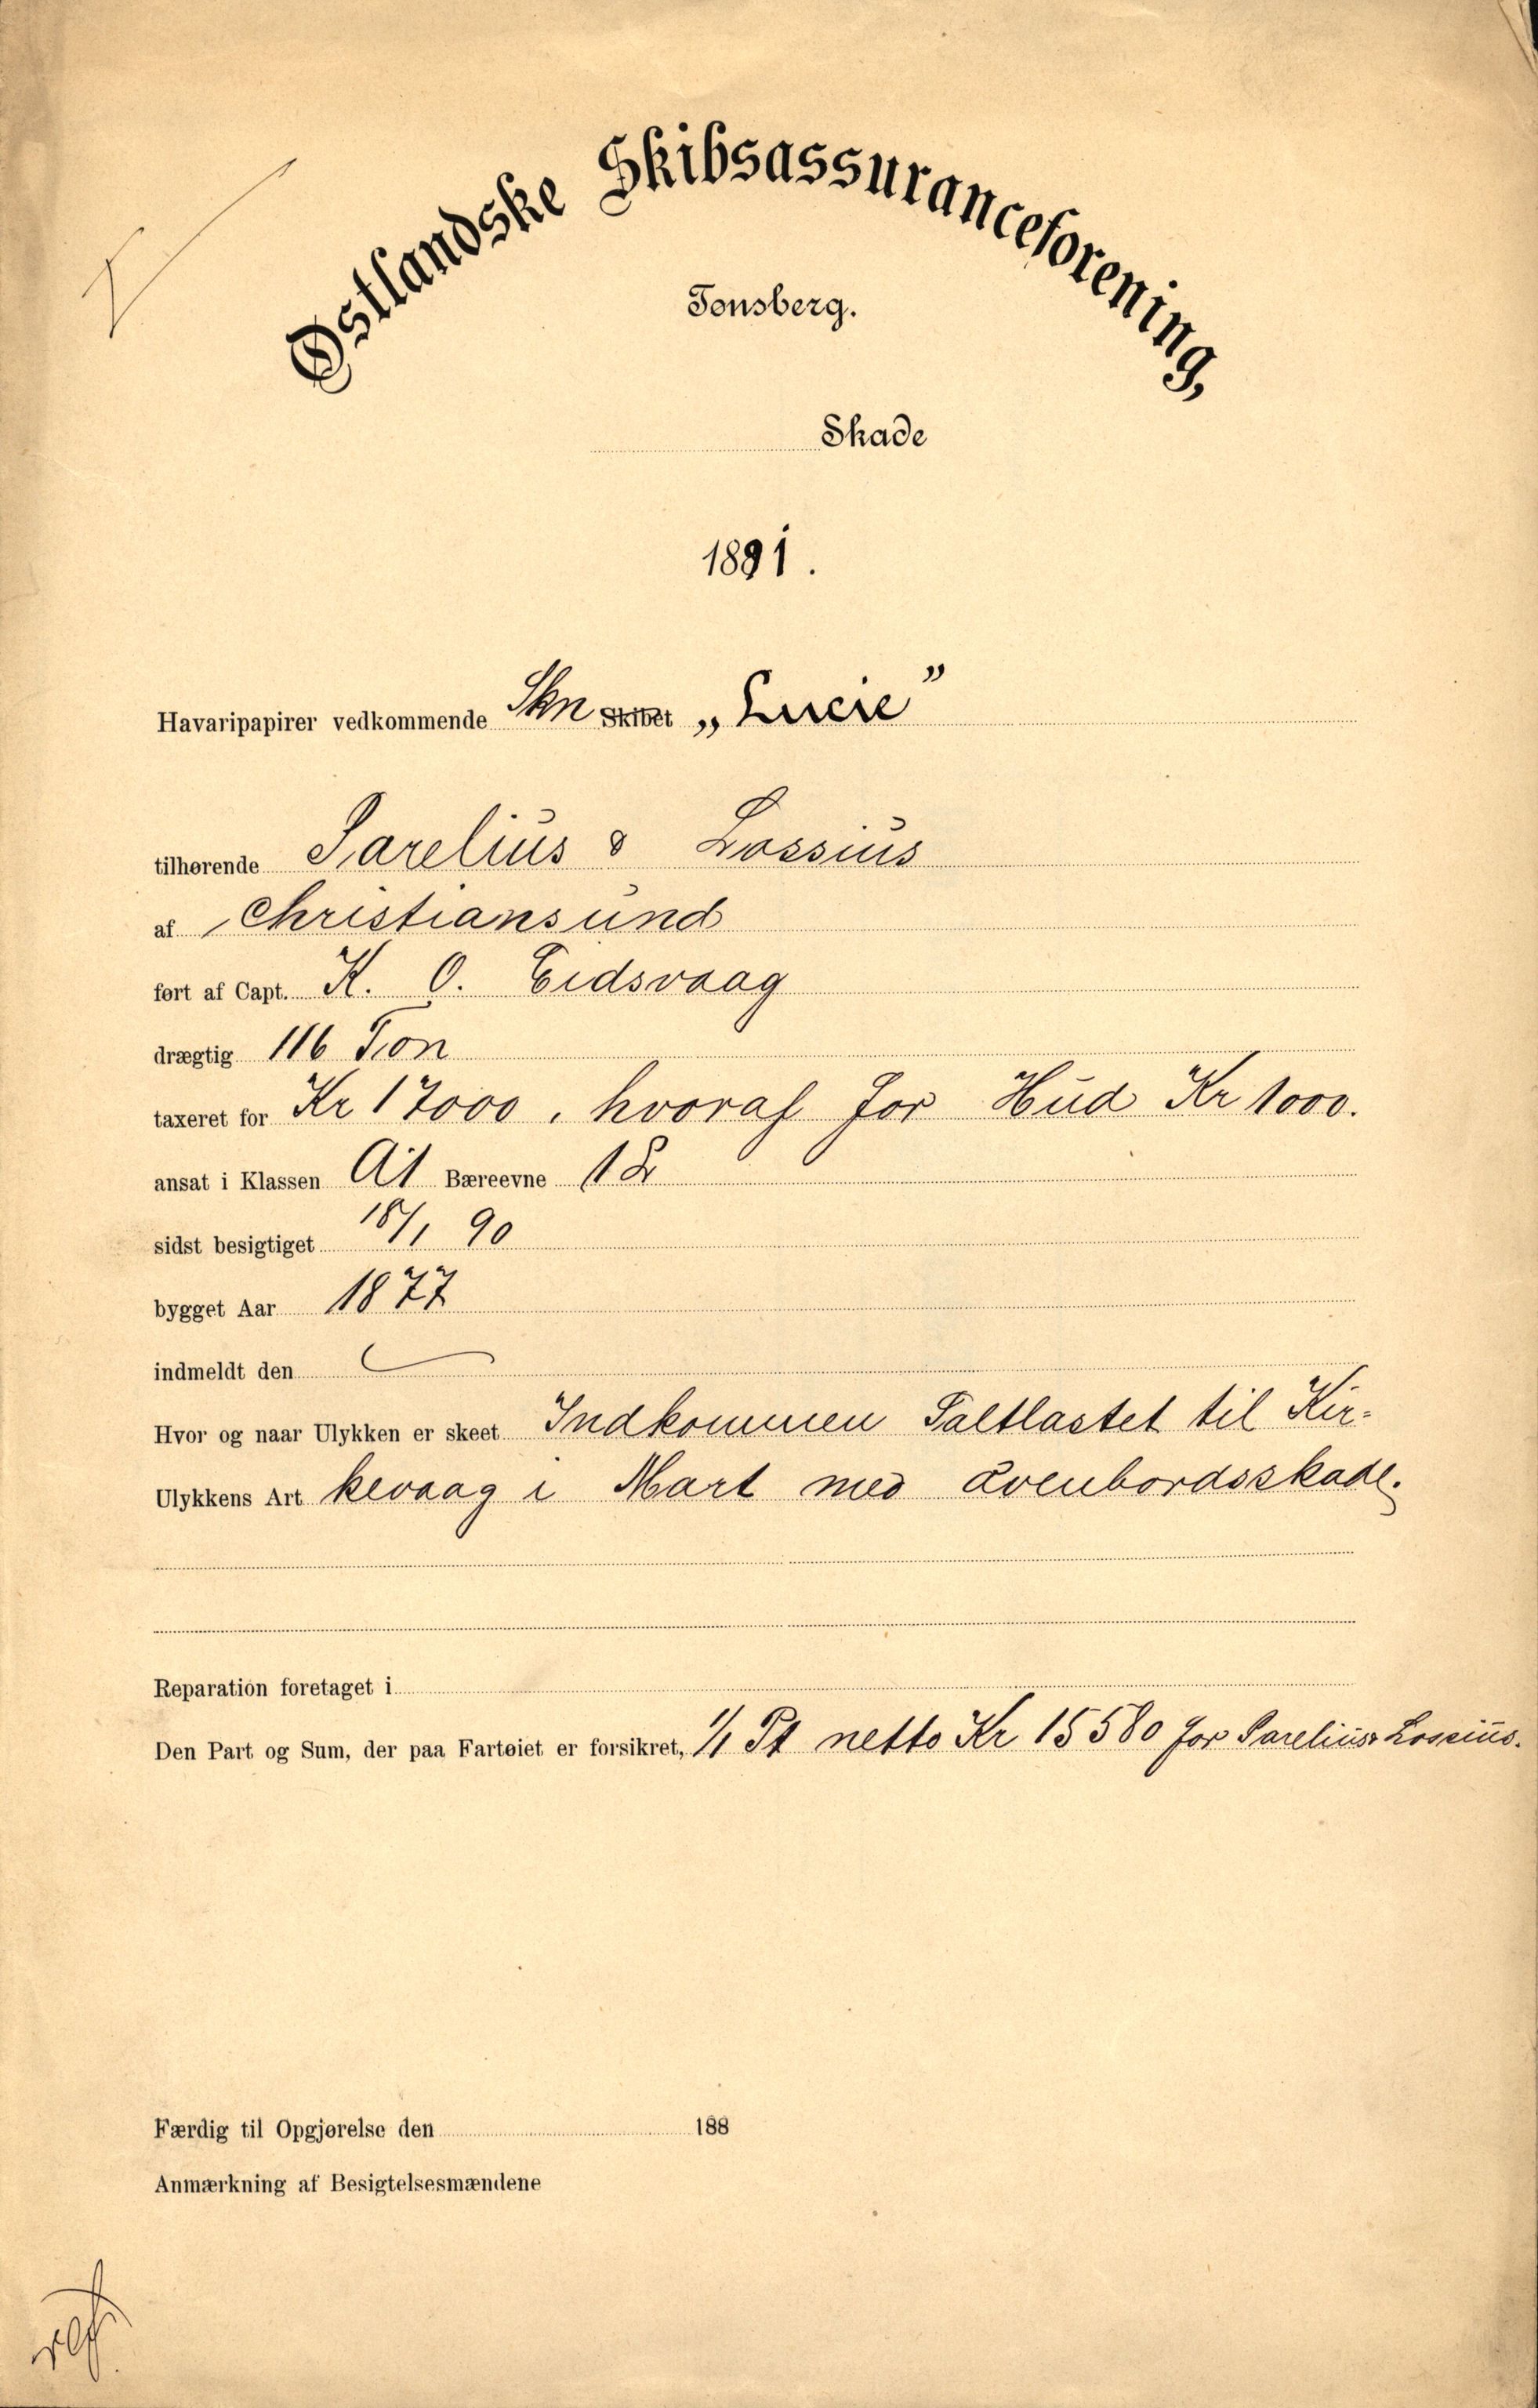 Østlandske Skibsassuranceforening,
Tønsberg.
Skade
1891.
Havaripapirer vedkommende Skn Skibet „Lucie”
tilhørende Parelius & Lossius
af Christiansund
ført af Capt. K. O. Eidsvaag
drægtig 116 Ton
taxeret for Kr 17000, hvoraf for Hud Kr 1000.
ansat i Klassen A1 Bæreevne
sidst besigtiget 18/1 90
bygget Aar 1877
indmeldt den
Hvor og naar Ulykken er skeet Indkommen Saltlastet til Kir-
Ulykkens Art kevaag i Mart med Ovenbordsskade.
Reparation foretaget i
Den Part og Sum, der paa Fartøiet er forsikret, 1/1 Pt netto Kr 15580 for Parelius & Lossius.
Færdig til Opgjørelse den 188
Anmærkning af Besigtelsesmændene